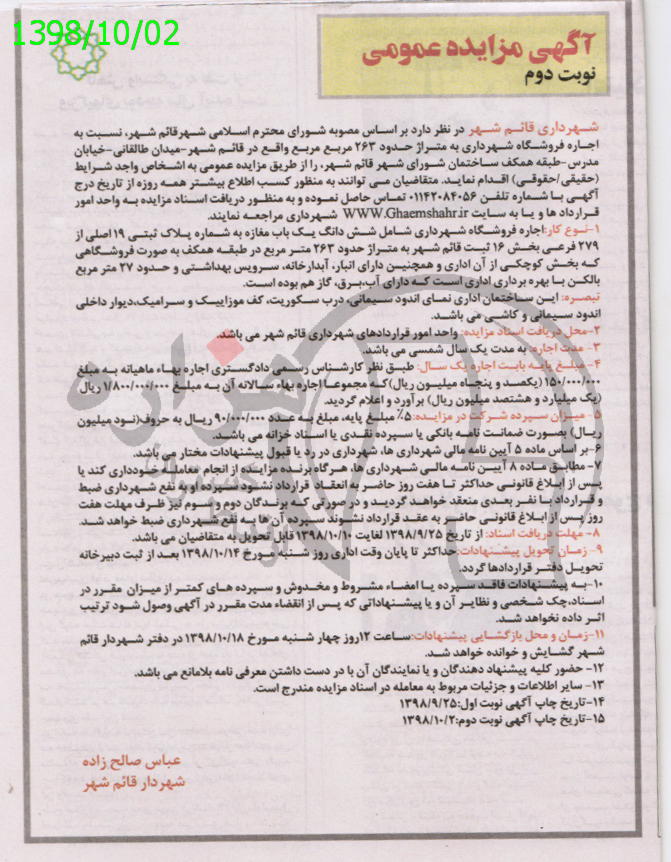 1398/10/02
آگهی مزایده عمومی
نوبت دوم
شهرداری قائم شهر در نظر دارد بر اساس مصوبه شورای محترم اسلامی شهرقائم شهر، نسبت به
اجاره فروشگاه شهرداری به متراژ حدود ۲۶۳ مربع مربع واقع در قائم شهر-میدان طالقانی-خیابان
مدرس-طبقه همکف ساختمان شورای شهر قائم شهر، را از طریق مزایده عمومی به اشخاص واجد شرایط
(حقیقی/حقوقی) اقدام نماید. متقاضیان می توانند به منظور کسب اطلاع بیشتر همه روزه از تاریخ درج
آگهی با شماره تلفن ۰۱۱۴۲۰۸۴۰۵۶ تماس حاصل نموده و به منظور دریافت اسناد مزایده به واحد امور
قرارداد ها و یا به سایت WWW.Ghaemshahr.ir شهرداری مراجعه نمایند.
۱-نوع کار:اجاره فروشگاه شهرداری شامل شش دانگ یک باب مغازه به شماره پلاک ثبتی ۱۹ اصلی از
۲۷۹ فرعی بخش ۱۶ ثبت قائم شهر به متراژ حدود ۲۶۳ متر مربع در طبقه همکف به صورت فروشگاهی
که بخش کوچکی از آن اداری و همچنین دارای انبار، آبدارخانه، سرویس بهداشتی و حدود ۲۷ متر مربع
بالکن با بهره برداری اداری است که دارای آب،برق، گاز هم بوده است.
تبصره: این ساختمان اداری نمای اندود سیمانی، درب سکوریت، کف موزاییک و سرامیک،دیوار داخلی
اندود سیمانی و کاشی می باشد.
۲-محل دریافت اسناد مزایده: واحد امور قراردادهای شهرداری قائم شهر می باشد.
۳- مدت اجاره: به مدت یک سال شمسی می باشد.
۴- مبلغ پایه بابت اجاره یک سال: طبق نظر کارشناس رسمی دادگستری اجاره بهاء ماهیانه به مبلغ
۱۵۰/۰۰۰/۰۰۰ (یکصد و پنجاه میلیون ریال)که مجموعا اجاره بهاء سالانه آن به مبلغ ۱/۸۰۰/۰۰۰/۰۰۰ ریال
(یک میلیارد و هشتصد میلیون ریال) برآورد و اعلام گردید.
۵- میزان سپرده شرکت در مزایده: ۵٪ مبلغ پایه، مبلغ به عدد ۹۰/۰۰۰/۰۰۰ ریال به حروف(نود میلیون
ریال) بصورت ضمانت نامه بانکی یا سپرده نقدی یا اسناد خزانه می باشد.
۶-بر اساس ماده ۵ آیین نامه مالی شهرداری ها، شهرداری در رد یا قبول پیشنهادات مختار می باشد.
۷- مطابق ماده ۸ آیین نامه مالی شهرداری ها، هرگاه برنده مزایده از انجام معامله خودداری کند یا
پس از ابلاغ قانونی حداکثر تا هفت روز حاضر به انعقاد قرارداد نشود سپرده او به نفع شهرداری ضبط
و قرارداد با نفر بعدی منعقد خواهد گردید و در صورتی که برندگان دوم و سوم نیز ظرف مهلت هفت
روز پس از ابلاغ قانونی حاضر به عقد قرارداد نشوند سپرده آن ها به نفع شهرداری ضبط خواهد شد.
۸- مهلت دریافت اسناد: از تاریخ ۱۳۹۸/۹/۲۵ لغایت ۱۳۹۸/۱۰/۱۰ قابل تحویل به متقاضیان می باشد.
۹- زمان تحویل پیشنهادات:حداکثر تا پایان وقت اداری روز شنبه مورخ ۱۳۹۸/۱۰/۱۴ بعد از ثبت دبیرخانه
تحویل دفتر قراردادها گردد.
۱۰-به پیشنهادات فاقد سپرده یا امضاء مشروط و مخدوش و سپرده های کمتر از میزان مقرر در
اسناد،چک شخصی و نظایر آن و یا پیشنهاداتی که پس از انقضاء مدت مقرر در آگهی وصول شود ترتیب
اثر داده نخواهد شد.
۱۱-زمان و محل بازگشایی پیشنهادات:ساعت ۱۲روز چهار شنبه مورخ ۱۳۹۸/۱۰/۱۸ در دفتر شهردار قائم
شهر گشایش و خوانده خواهد شد.
۱۲- حضور کلیه پیشنهاد دهندگان و یا نمایندگان آن با در دست داشتن معرفی نامه بلامانع می باشد.
۱۳- سایر اطلاعات و جزئیات مربوط به معامله در اسناد مزایده مندرج است.
۱۴-تاریخ چاپ آگهی نوبت اول:۱۳۹۸/۹/۲۵
۱۵-تاریخ چاپ آگهی نوبت دوم:۱۳۹۸/۱۰/۲
عباس صالح زاده
شهردار قائم شهر
هزاره